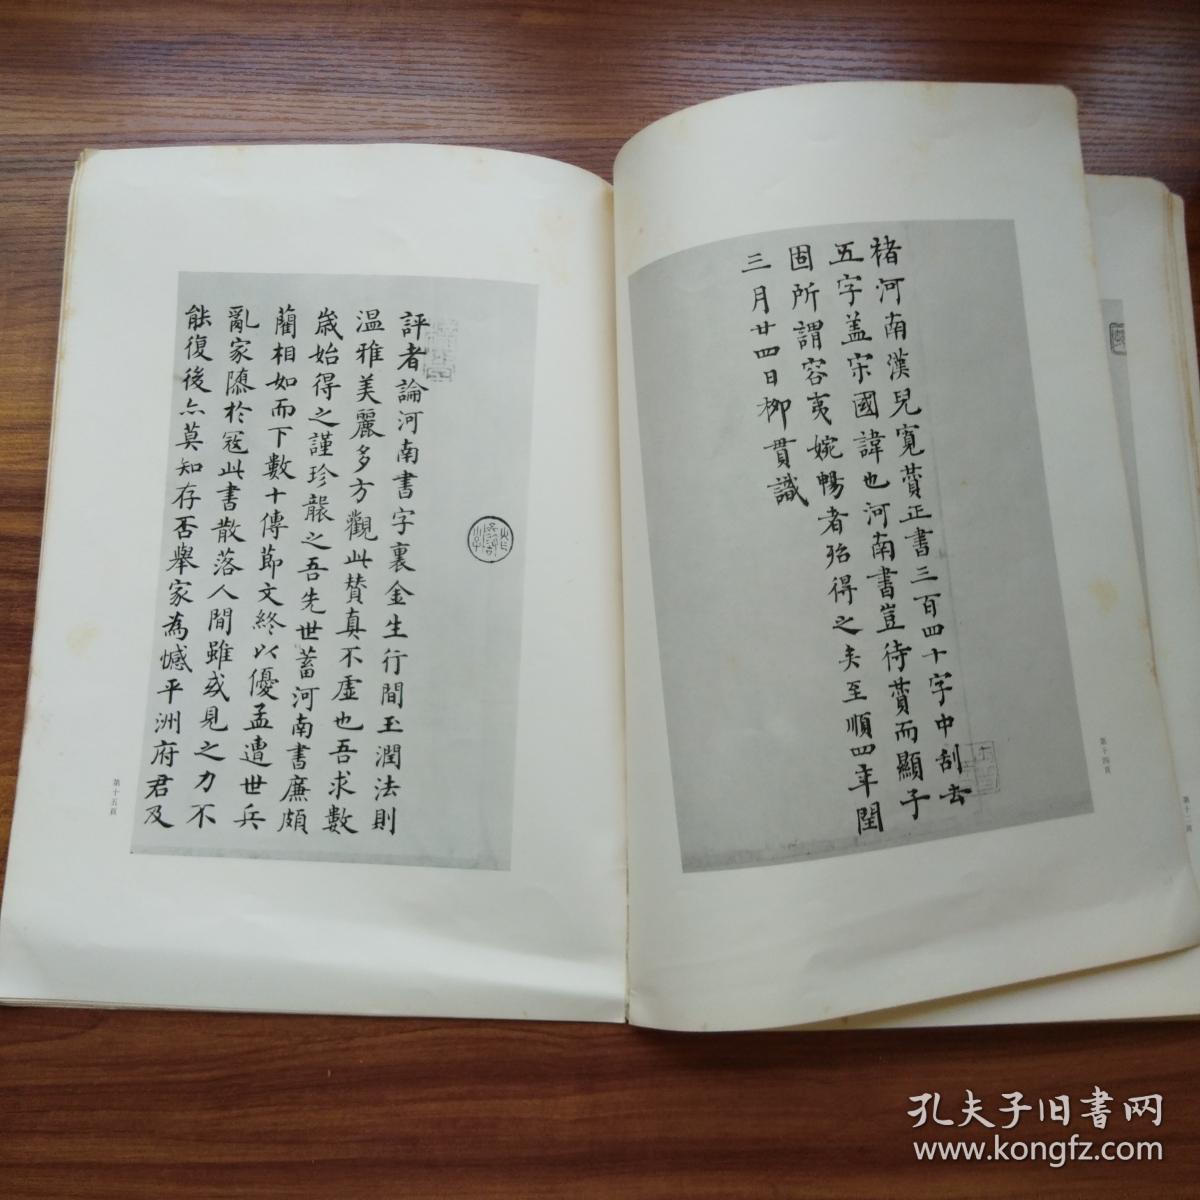 褚河南漢兒寬贊正書三百四十字中刮去
五字盖宋國諱也河南書豈待贊而顯子
固所謂容夷婉暢者殆得之矣至順四年閏
三月廿四日柳貫識
第十四頁
評者論河南書字裏金生行間玉潤法則
温雅美麗多方觀此賛真不虚也吾求數
歲始得之謹珍襲之吾先世蓄河南書廉頗
藺相如而下數十傳節文終以優孟遭世兵
亂家隨於寇此書散落人間雖或見之力不
能復後亦莫知存否舉家為憾平洲府君及
第十五頁
第十二頁
孔夫子旧書网
www.kongfz.com